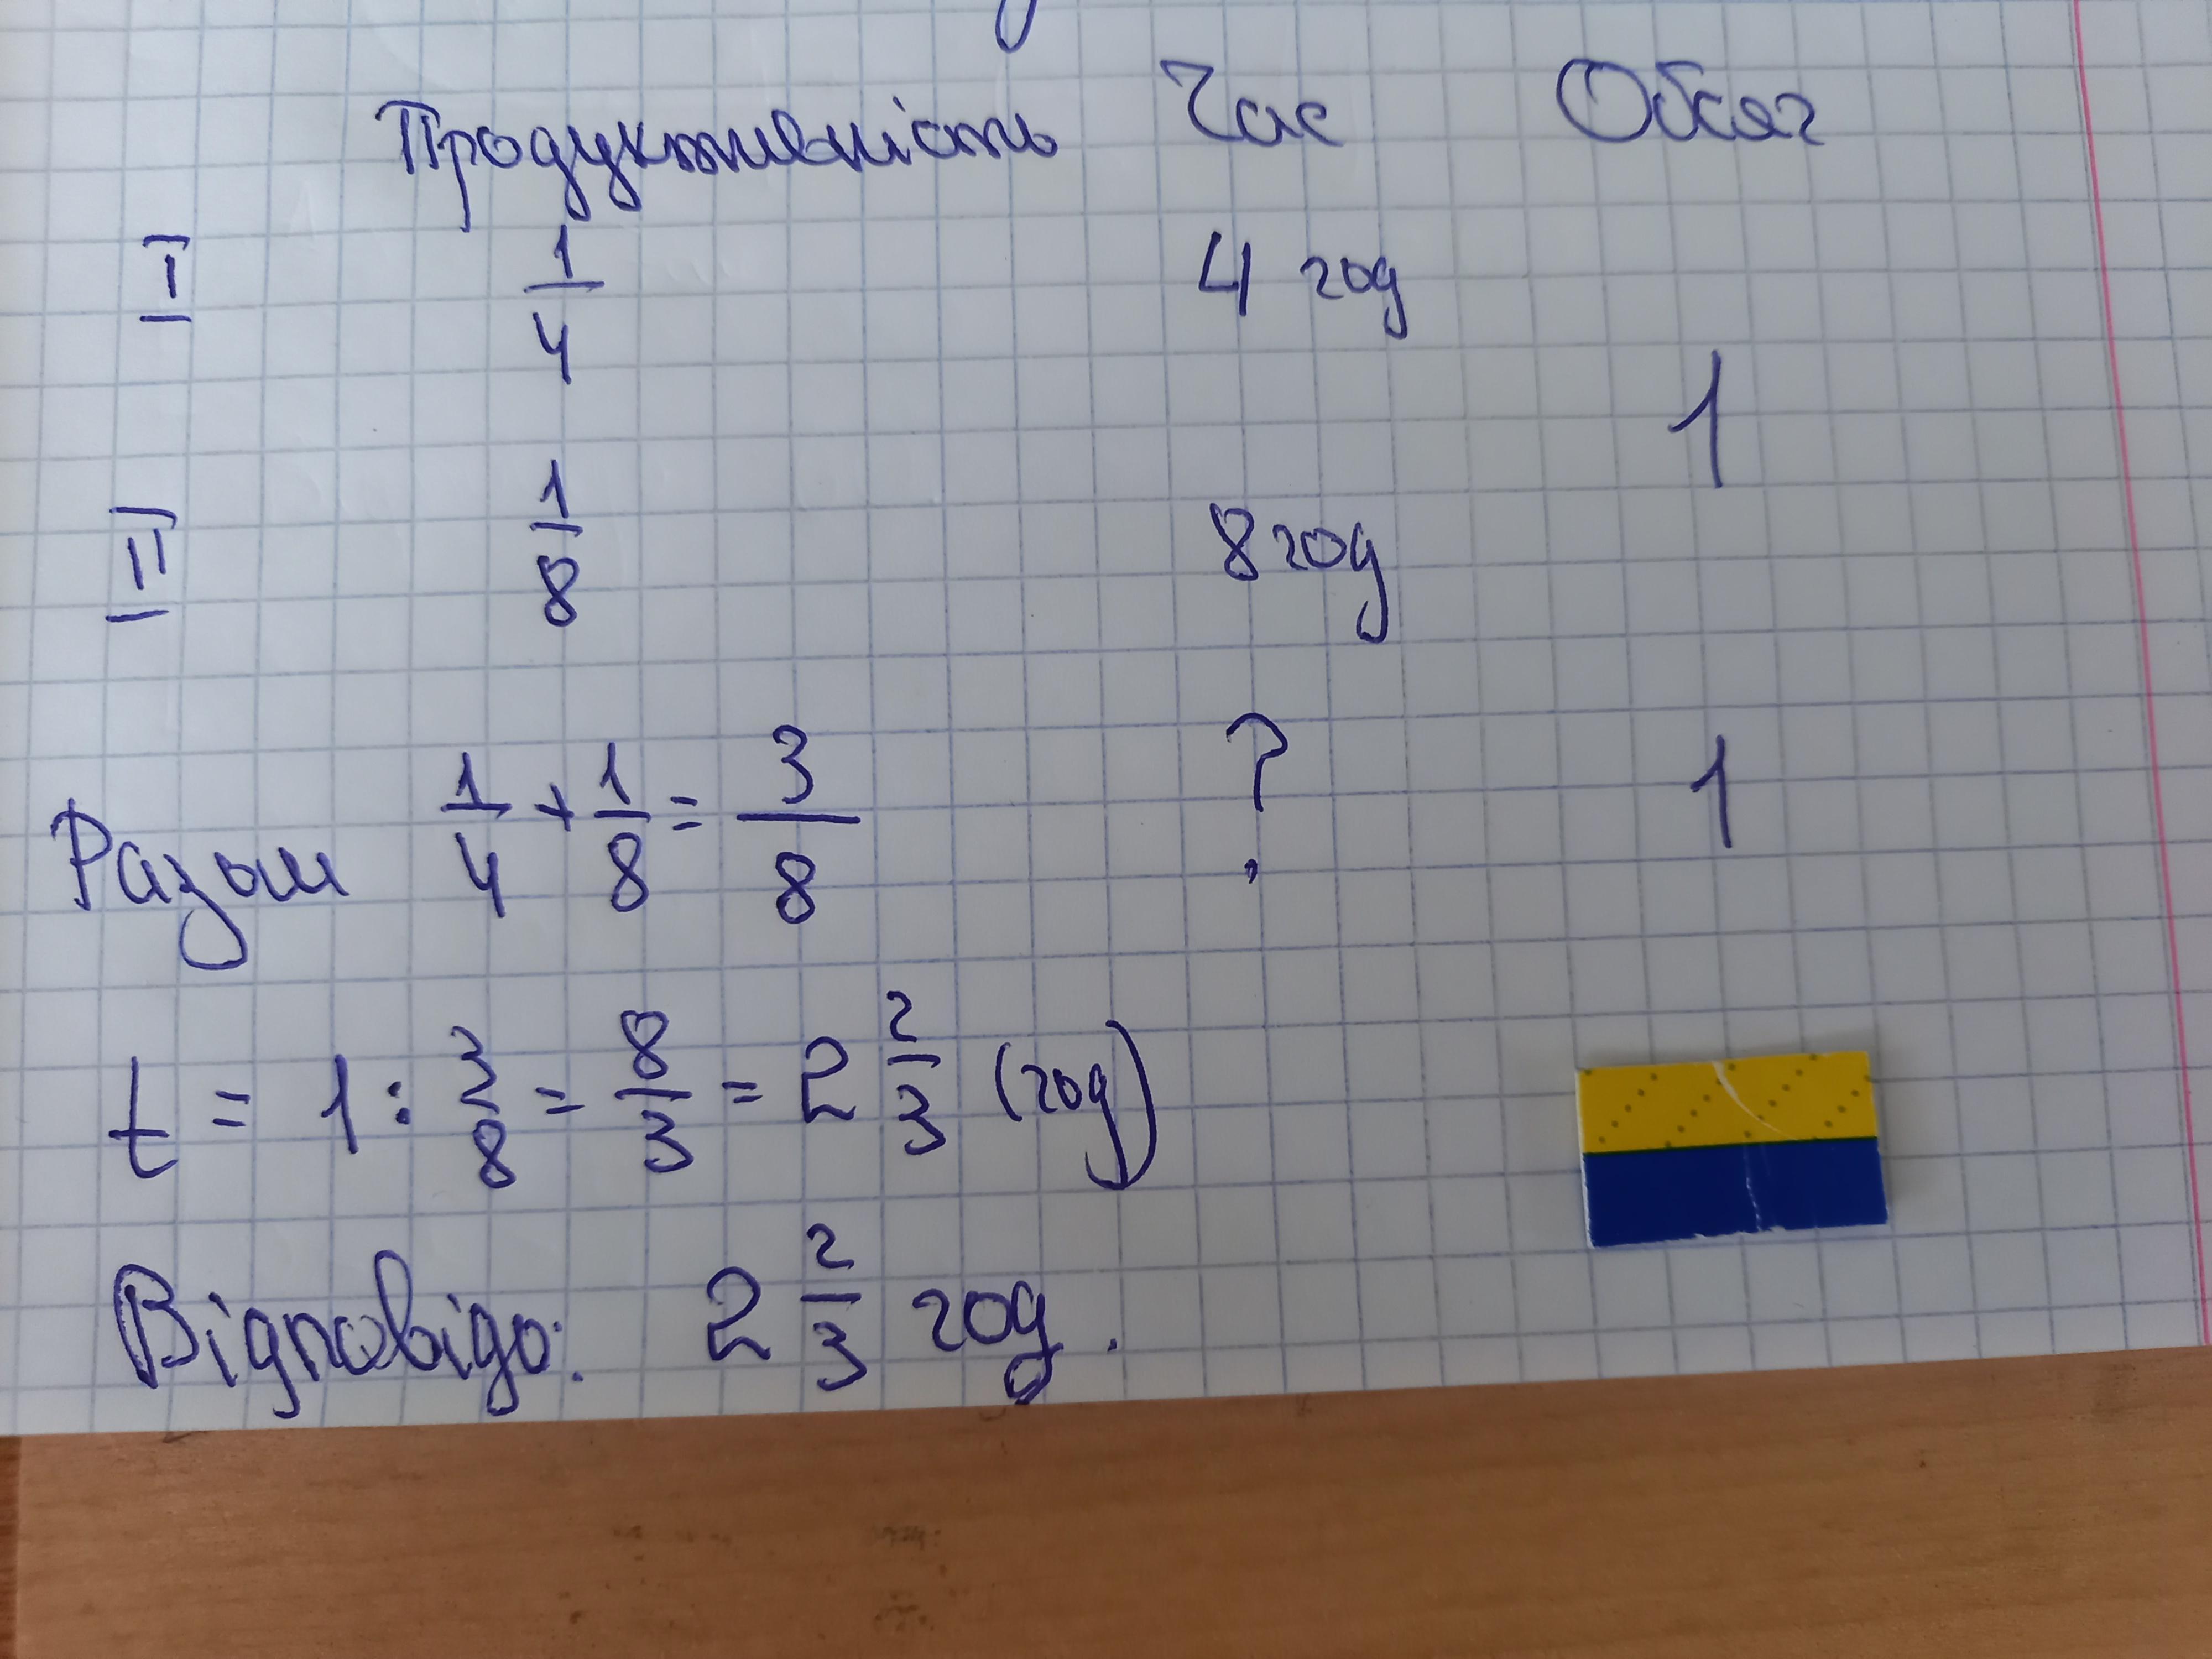 Продуктивність Час Обсяг
I 1/4 4 год
1
II 1/8 8 год
Разом 1/4 + 1/8 = 3/8 ? 1
t = 1 : 3/8 = 8/3 = 2 2/3 (год)
Відповідь: 2 2/3 год.